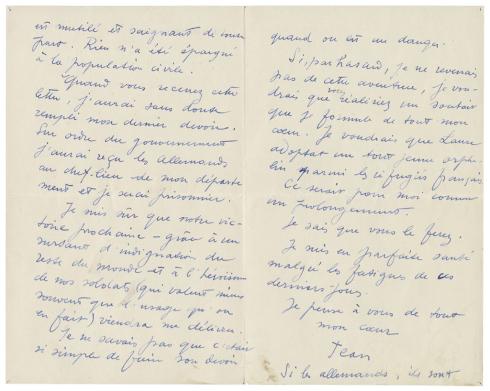 est mutilé et saignant de toute
part. Rien n'a été épargné
à la population civile.
Quand vous recevrez cette
lettre, j'aurai sans doute
rempli mon dernier devoir.
Sur ordre du gouvernement
j'aurai reçu les Allemands
au chef-lieu de mon départe
ment et je serai prisonnier.
Je suis sûr que notre vic-
toire prochaine - grâce à un
sursaut d'indignation du
reste du monde et à l'héroïsme
de nos soldats (qui valent mieux
souvent que l'usage qu'on
en fait) viendra me délivrer.
Je ne savais pas que c'était
si simple de faire son devoir
quand on est en danger.
Si, par hasard, je ne revenais
pas de cette aventure, je vou-
drais que vous réalisiez un souhait
que je formule de tout mon
cœur. Je voudrais que Laure
adoptât un tout jeune orphe-
lin parmi les réfugiés français
Ce serait pour moi comme
un prolongement.
Je sais que vous le ferez.
Je suis en parfaite santé
malgré les fatigues de ces
derniers jours.
Je pense à vous de tout
mon cœur
Jean
Si les allemands, ils sont